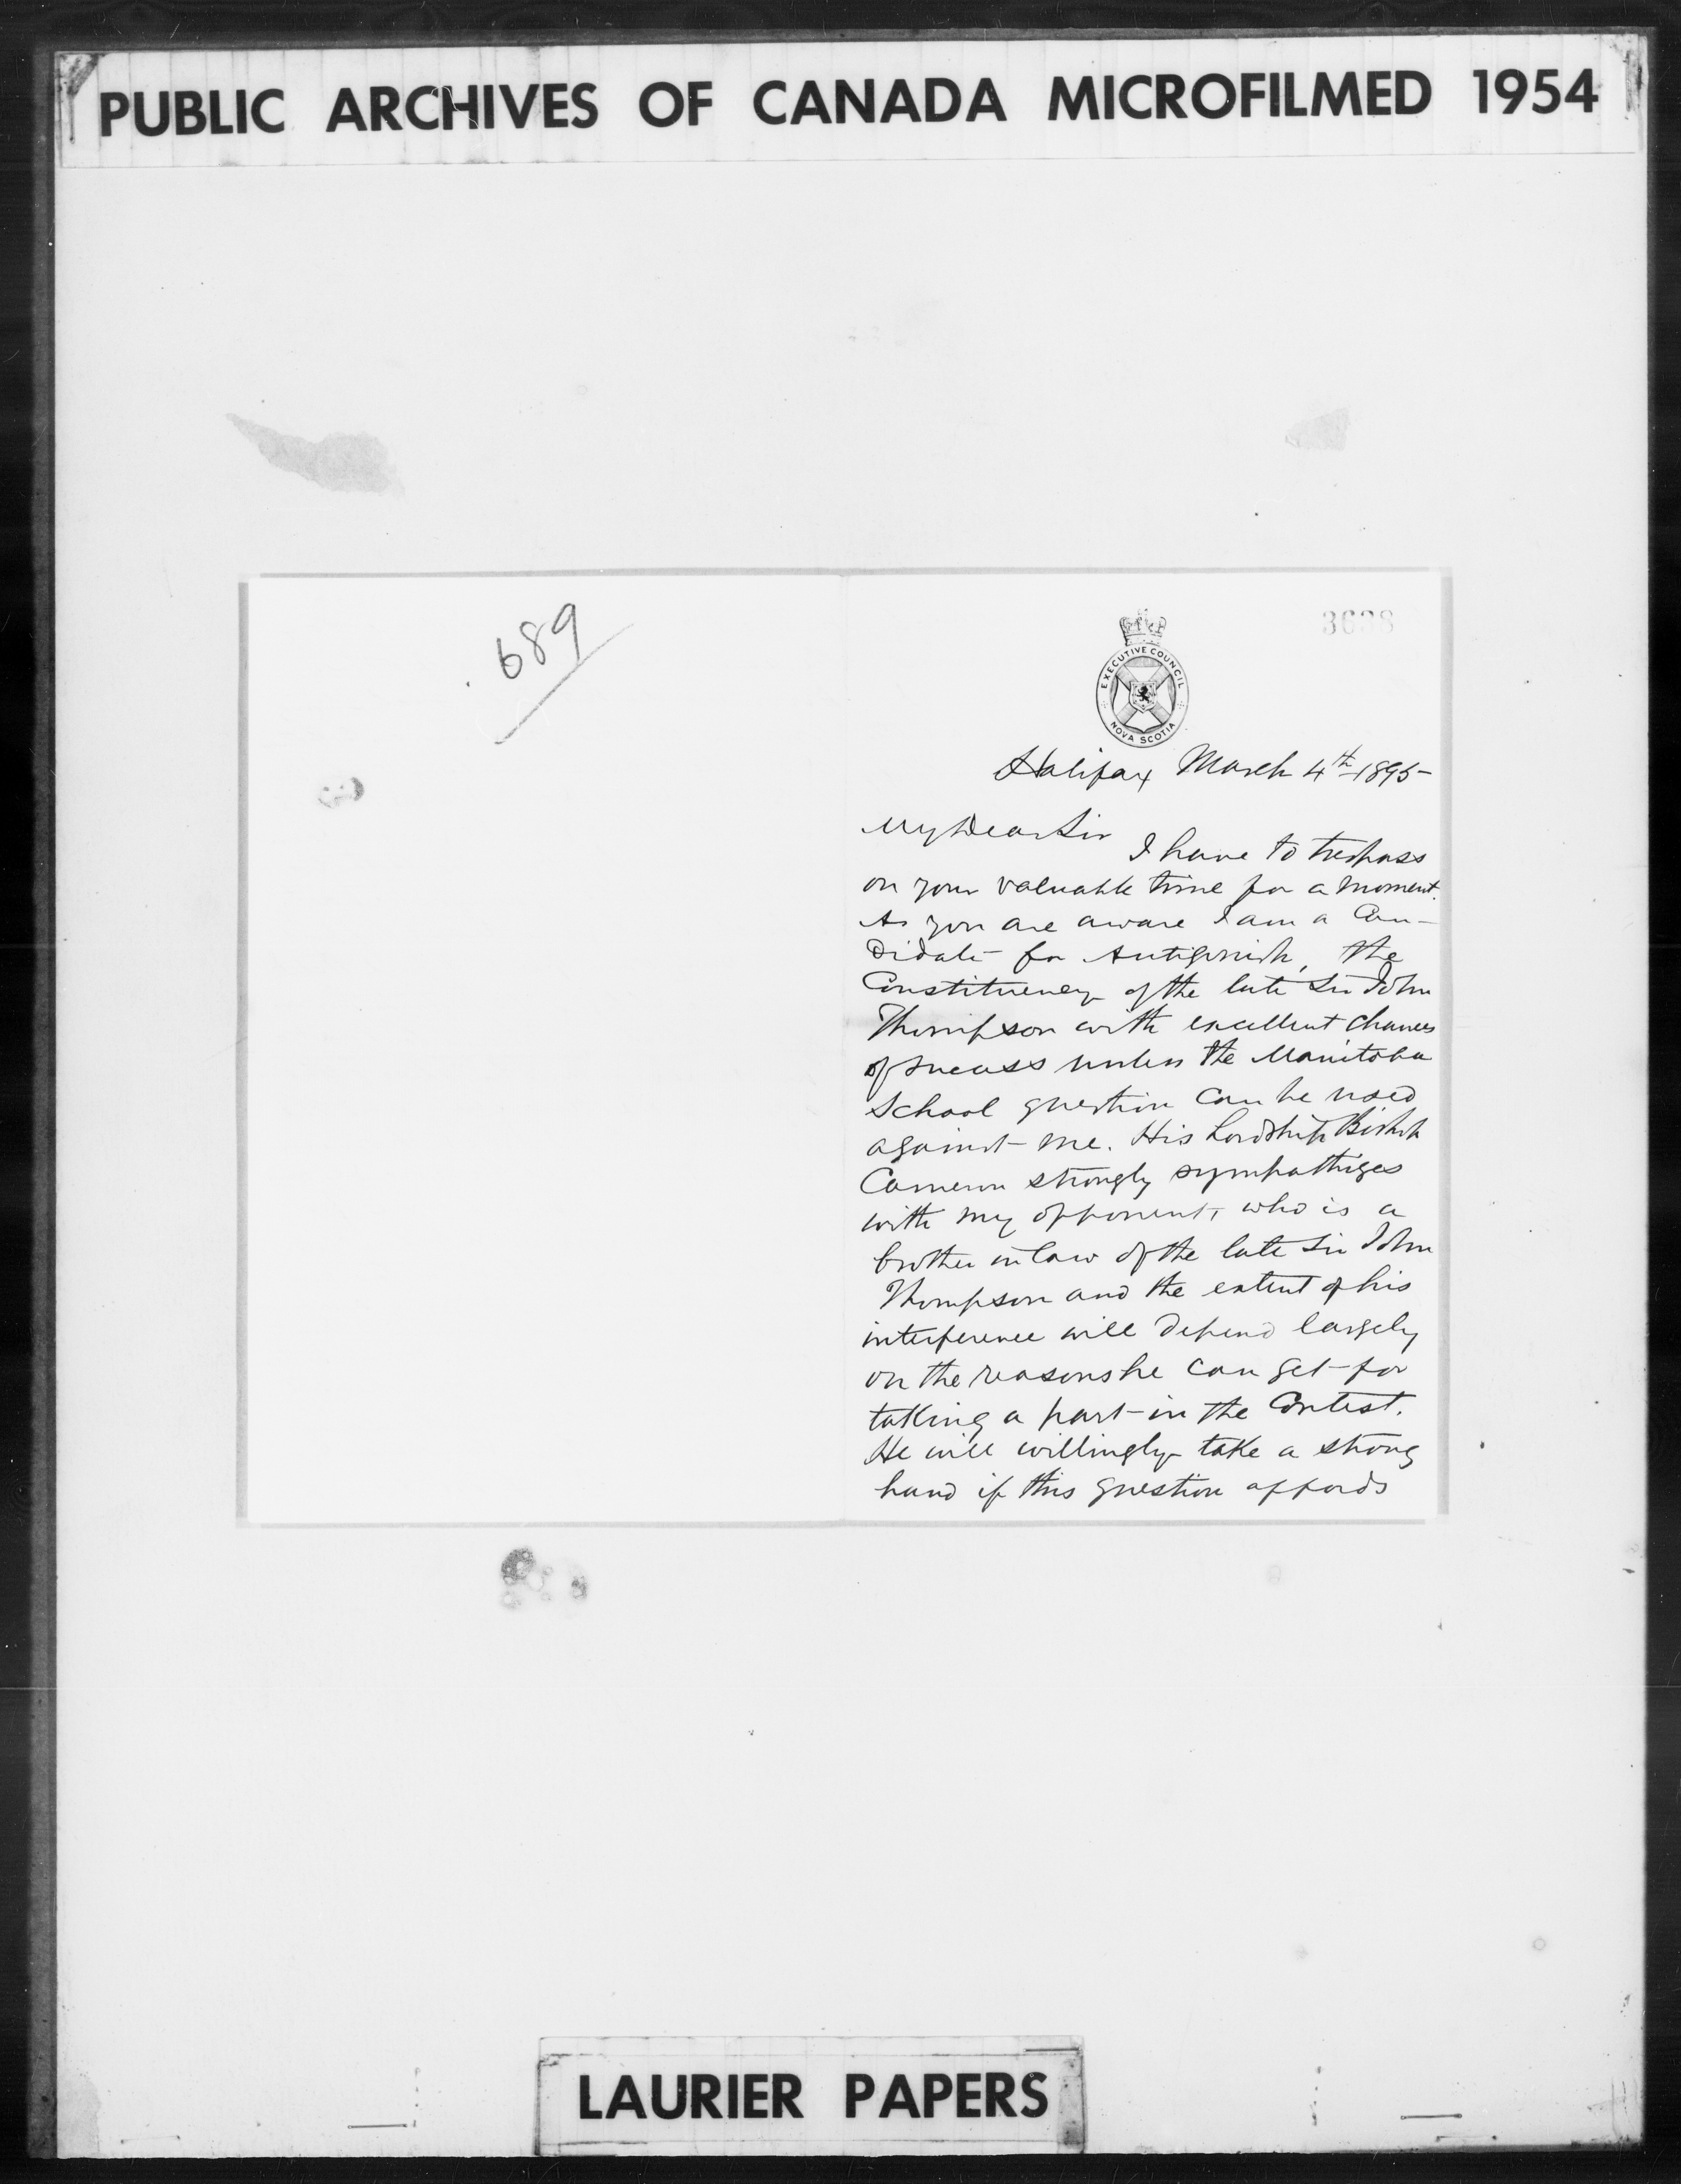 PUBLIC ARCHIVES OF CANADA MICROFILMED 1954
689
EXECUTIVE COUNCIL
NOVA SCOTIA
Halifax March 4th 1895-
My Dear Sir
I have to trespass
on your valuable time for a moment.
As you are aware I am a Can-
didate for Antigonish, the
Constituency of the late Sir John
Thompson with excellent chances
of success unless the Manitoba
School question can be used
against me. His Lordship Bishop
Cameron strongly sympathizes
with my opponent, who is a
brother in law of the late Sir John
Thompson and the extent of his
interference will depend largely
on the reasons he can get for
taking a part in the Contest.
He will willingly take a strong
hand if this question affords
LAURIER PAPERS